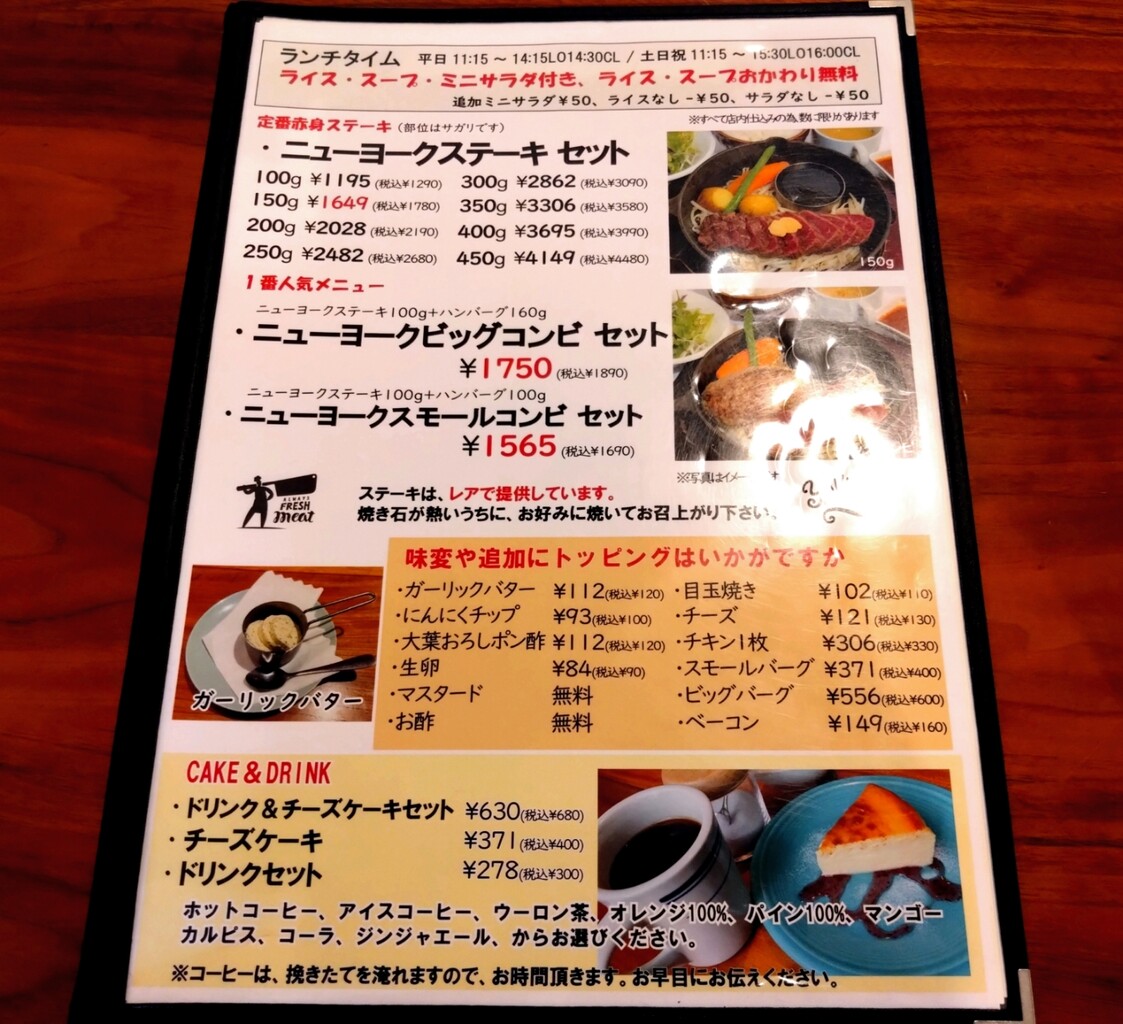 ランチタイム 平日 11:15 ～ 14:15LO14:30CL / 土日祝 11:15 ～ 15:30LO16:00CL
ライス・スープ・ミニサラダ付き、ライス・スープおかわり無料
追加ミニサラダ¥50、ライスなし -¥50、サラダなし -¥50
定番赤身ステーキ（部位はサガリです）
※すべて店内仕込みの為、数に限りがあります
・ニューヨークステーキ セット
100g ¥1195（税込¥1290） 300g ¥2862（税込¥3090）
150g ¥1649（税込¥1780） 350g ¥3306（税込¥3580）
200g ¥2028（税込¥2190） 400g ¥3695（税込¥3990）
250g ¥2482（税込¥2680） 450g ¥4149（税込¥4480）
150g
1番人気メニュー
ニューヨークステーキ100g＋ハンバーグ160g
・ニューヨークビッグコンビ セット
¥1750（税込¥1890）
ニューヨークステーキ100g＋ハンバーグ100g
・ニューヨークスモールコンビ セット
¥1565（税込¥1690）
※写真はイメー
ALWAYS
FRESH
meat
ステーキは、レアで提供しています。
焼き石が熱いうちに、お好みに焼いてお召上がり下さい。
味変や追加にトッピングはいかがですか
・ガーリックバター ¥112（税込¥120） ・目玉焼き ¥102（税込¥110）
・にんにくチップ ¥93（税込¥100） ・チーズ ¥121（税込¥130）
・大葉おろしポン酢 ¥112（税込¥120） ・チキン1枚 ¥306（税込¥330）
・生卵 ¥84（税込¥90） ・スモールバーグ ¥371（税込¥400）
・マスタード 無料 ・ビッグバーグ ¥556（税込¥600）
・お酢 無料 ・ベーコン ¥149（税込¥160）
ガーリックバター
CAKE＆DRINK
・ドリンク＆チーズケーキセット ¥630（税込¥680）
・チーズケーキ ¥371（税込¥400）
・ドリンクセット ¥278（税込¥300）
ホットコーヒー、アイスコーヒー、ウーロン茶、オレンジ100%、パイン100%、マンゴー
カルピス、コーラ、ジンジャエール、からお選びください。
※コーヒーは、挽きたてを淹れますので、お時間頂きます。お早目にお伝えください。